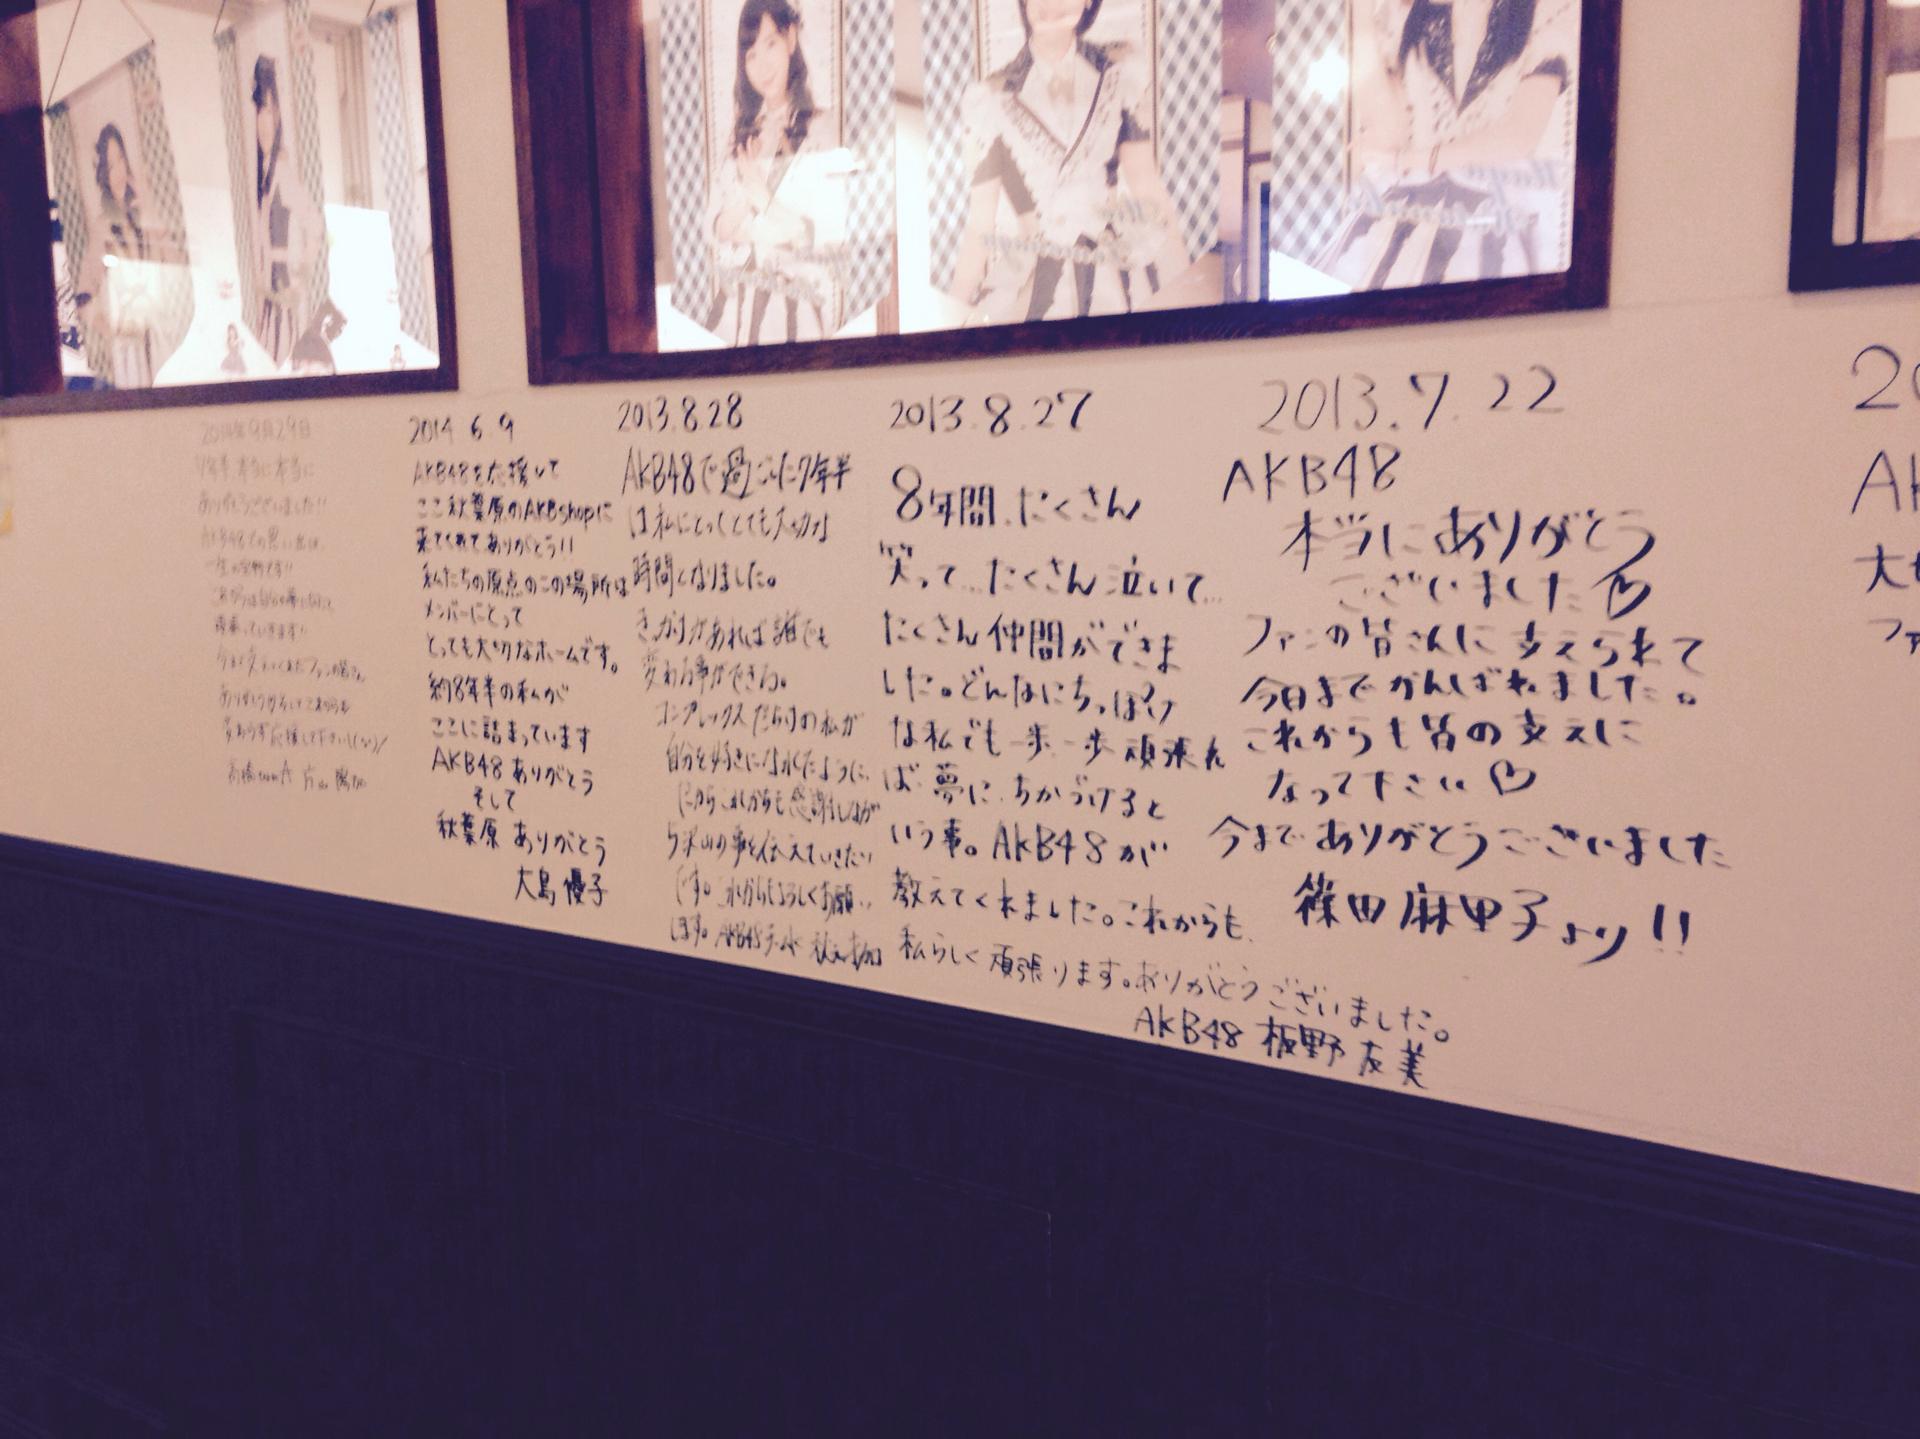 2014年9月29日
7年半 本当に本当に
ありがとうございました!!
AKB48での思い出は、
一生の宝物です!!
2014 6.9
AKB48を応援して
ここ秋葉原のAKBshopに
来てくれてありがとう!!
私たちの原点のこの場所は
メンバーにとって
とっても大切なホームです。
約8年半の私が
ここに詰まっています
AKB48 ありがとう
そして
秋葉原 ありがとう
大島 優子
2013.8.28
AKB48で過ごした7年半
は私にとってとても大切な
時間となりました。
きっかけがあれば誰でも
変わる事ができる。
コンプレックスだらけの私が
自分を好きになれたように、
だからこれからも感謝しなが
ら沢山の事を伝えていきたい
です。これからもよろしくお願い
します。AKB48
2013.8.27
8年間、たくさん
笑って…たくさん泣いて…
たくさん仲間ができま
した。どんなにちっぽけ
な私でも一歩一歩頑張れ
ば夢に、ちかづけると
いう事。AKB48が
教えてくれました。これからも、
私らしく頑張ります。ありがとうございました。
AKB48 板野 友美
2013.7.22
AKB48
本当にありがとう
ございました♡
ファンの皆さんに支えられて
今日までがんばれました。
これからも皆の支えに
なって下さい♡
今までありがとうございました
篠田麻里子より!!